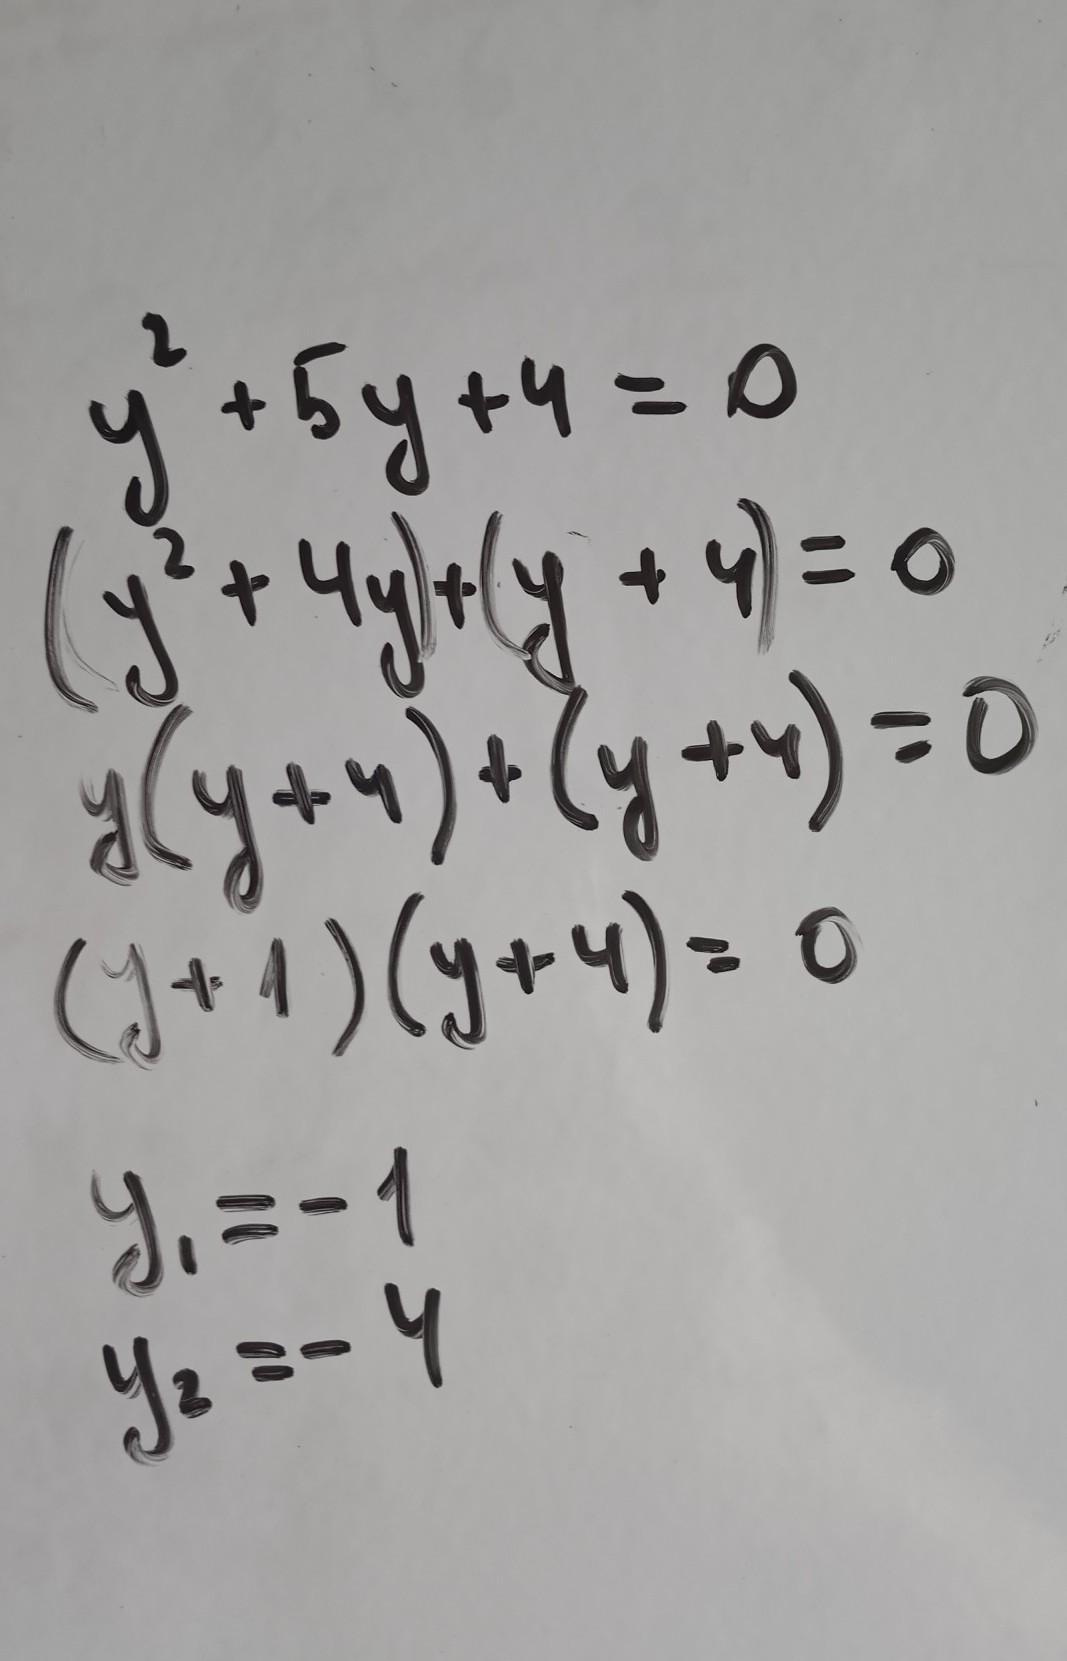 y² + 5y + 4 = 0
(y² + 4y) + (y + 4) = 0
y(y + 4) + (y + 4) = 0
(y + 1)(y + 4) = 0
y₁ = - 1
y₂ = - 4